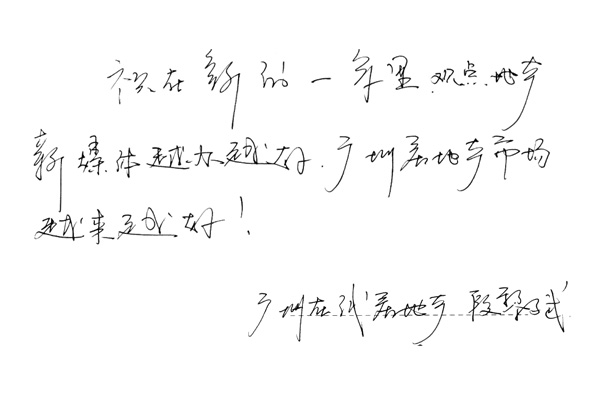 祝在新的一年里观点地产
新媒体越办越好.广州房地产市场
越来越好!
广州在线房地产 段